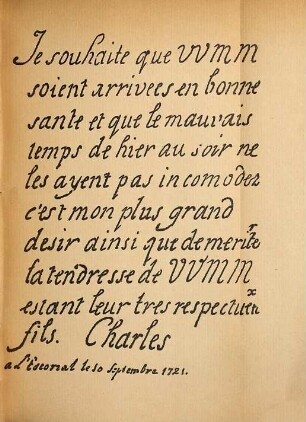 Je souhaite que VVMM
soient arrivees en bonne
sante et que le mauvais
temps de hier au soir ne
les ayent pas incomodez
c'est mon plus grand
desir ainsi que de meriter
la tendresse de VVMM
estant leur tres respectueux
fils. Charles
a L'Escorial le 10 Septembre 1721.